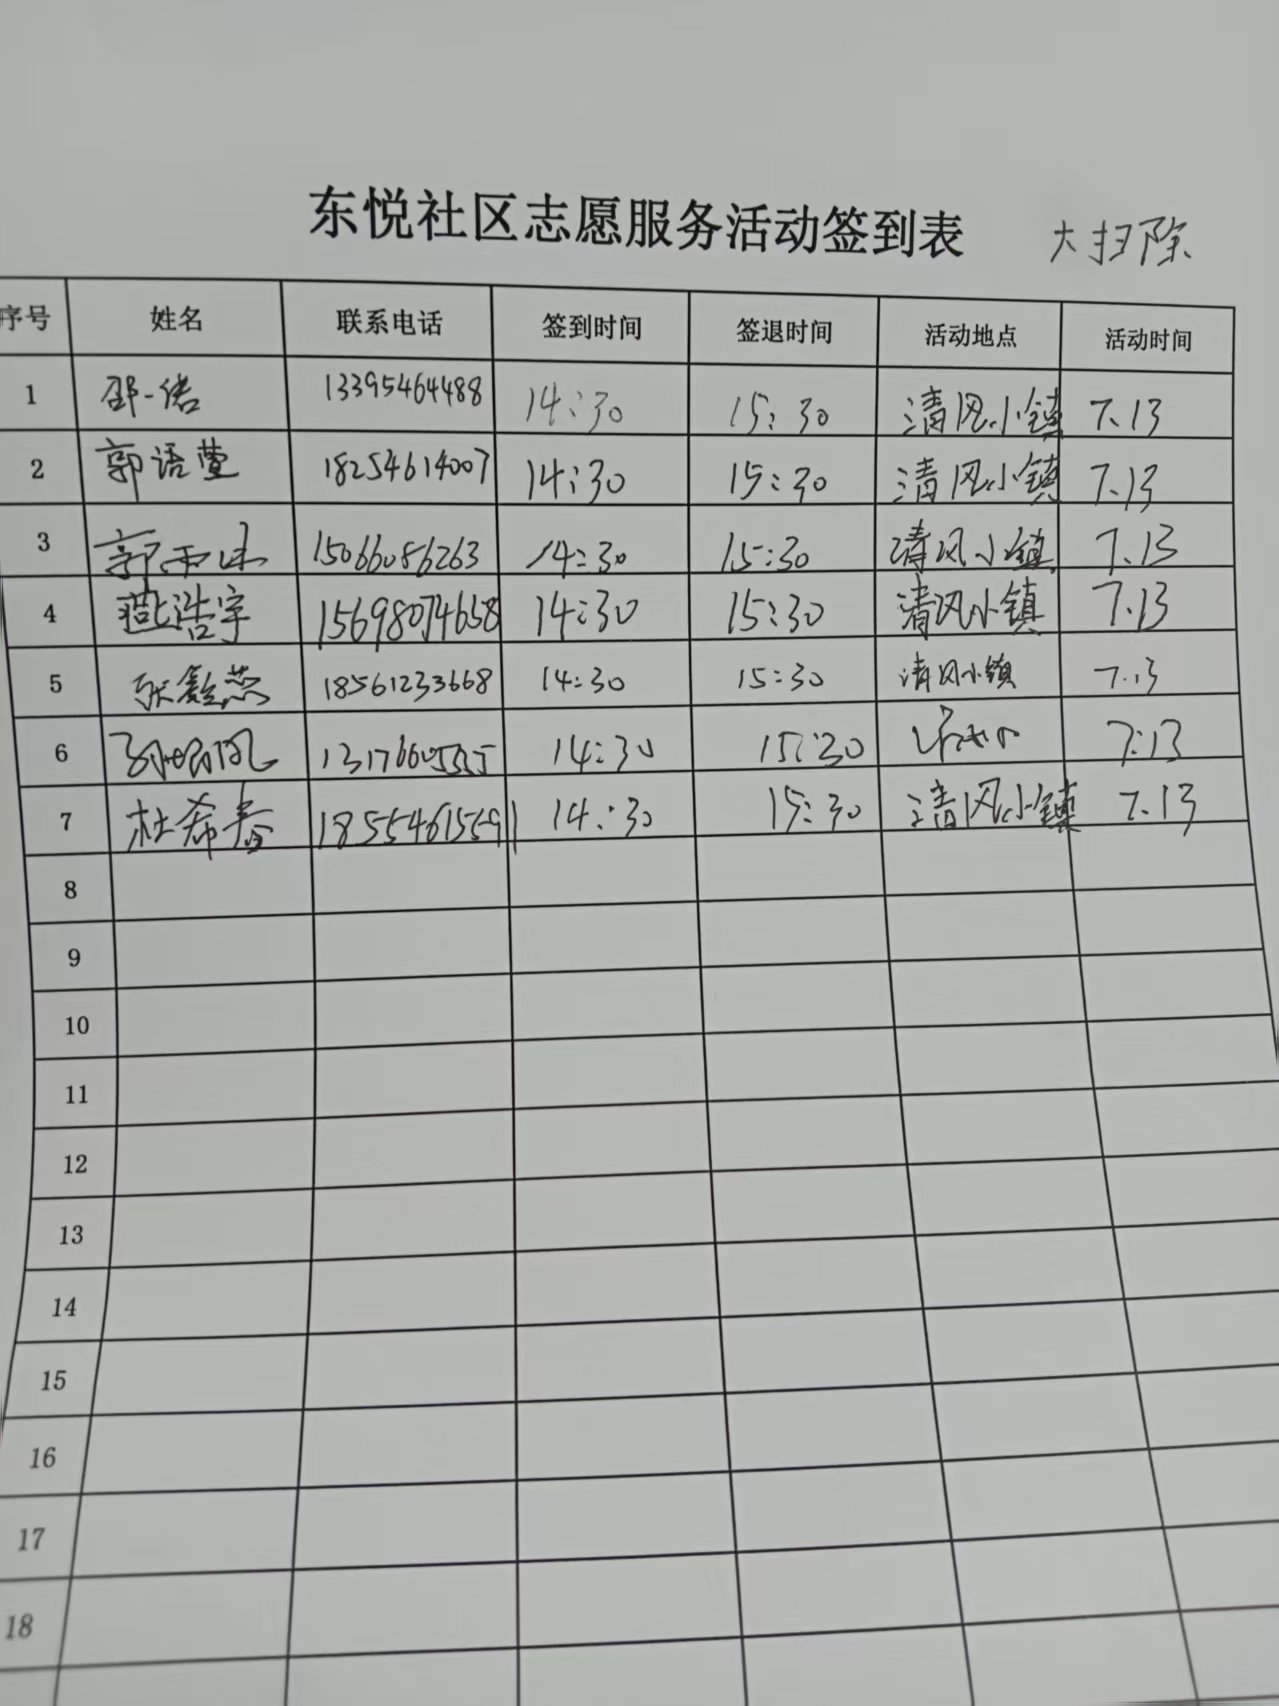 东悦社区志愿服务活动签到表 大扫除
序号 姓名 联系电话 签到时间 签退时间 活动地点 活动时间
1 邵一诺 13395464488 14:30 15:30 清风小镇 7.13
2 郭语萱 18254614007 14:30 15:30 清风小镇 7.13
3 郭雨 15066086263 14:30 15:30 清风小镇 7.13
4 燕浩宇 15698074658 14:30 15:30 清风小镇 7.13
5 张鑫蕊 18561233668 14:30 15:30 清风小镇 7.13
6 14:30 15:30 7.13
7 杜希春 14:30 15:30 清风小镇 7.13
8
9
10
11
12
13
14
15
16
17
18